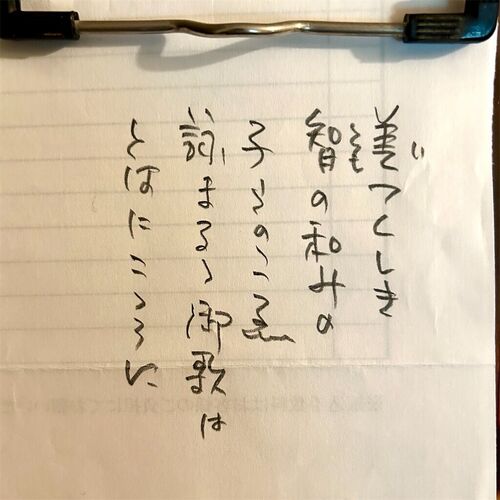 美つくしき
智の和みの
子らのこゑ
詠まるゝ御歌は
とはにこゝろに